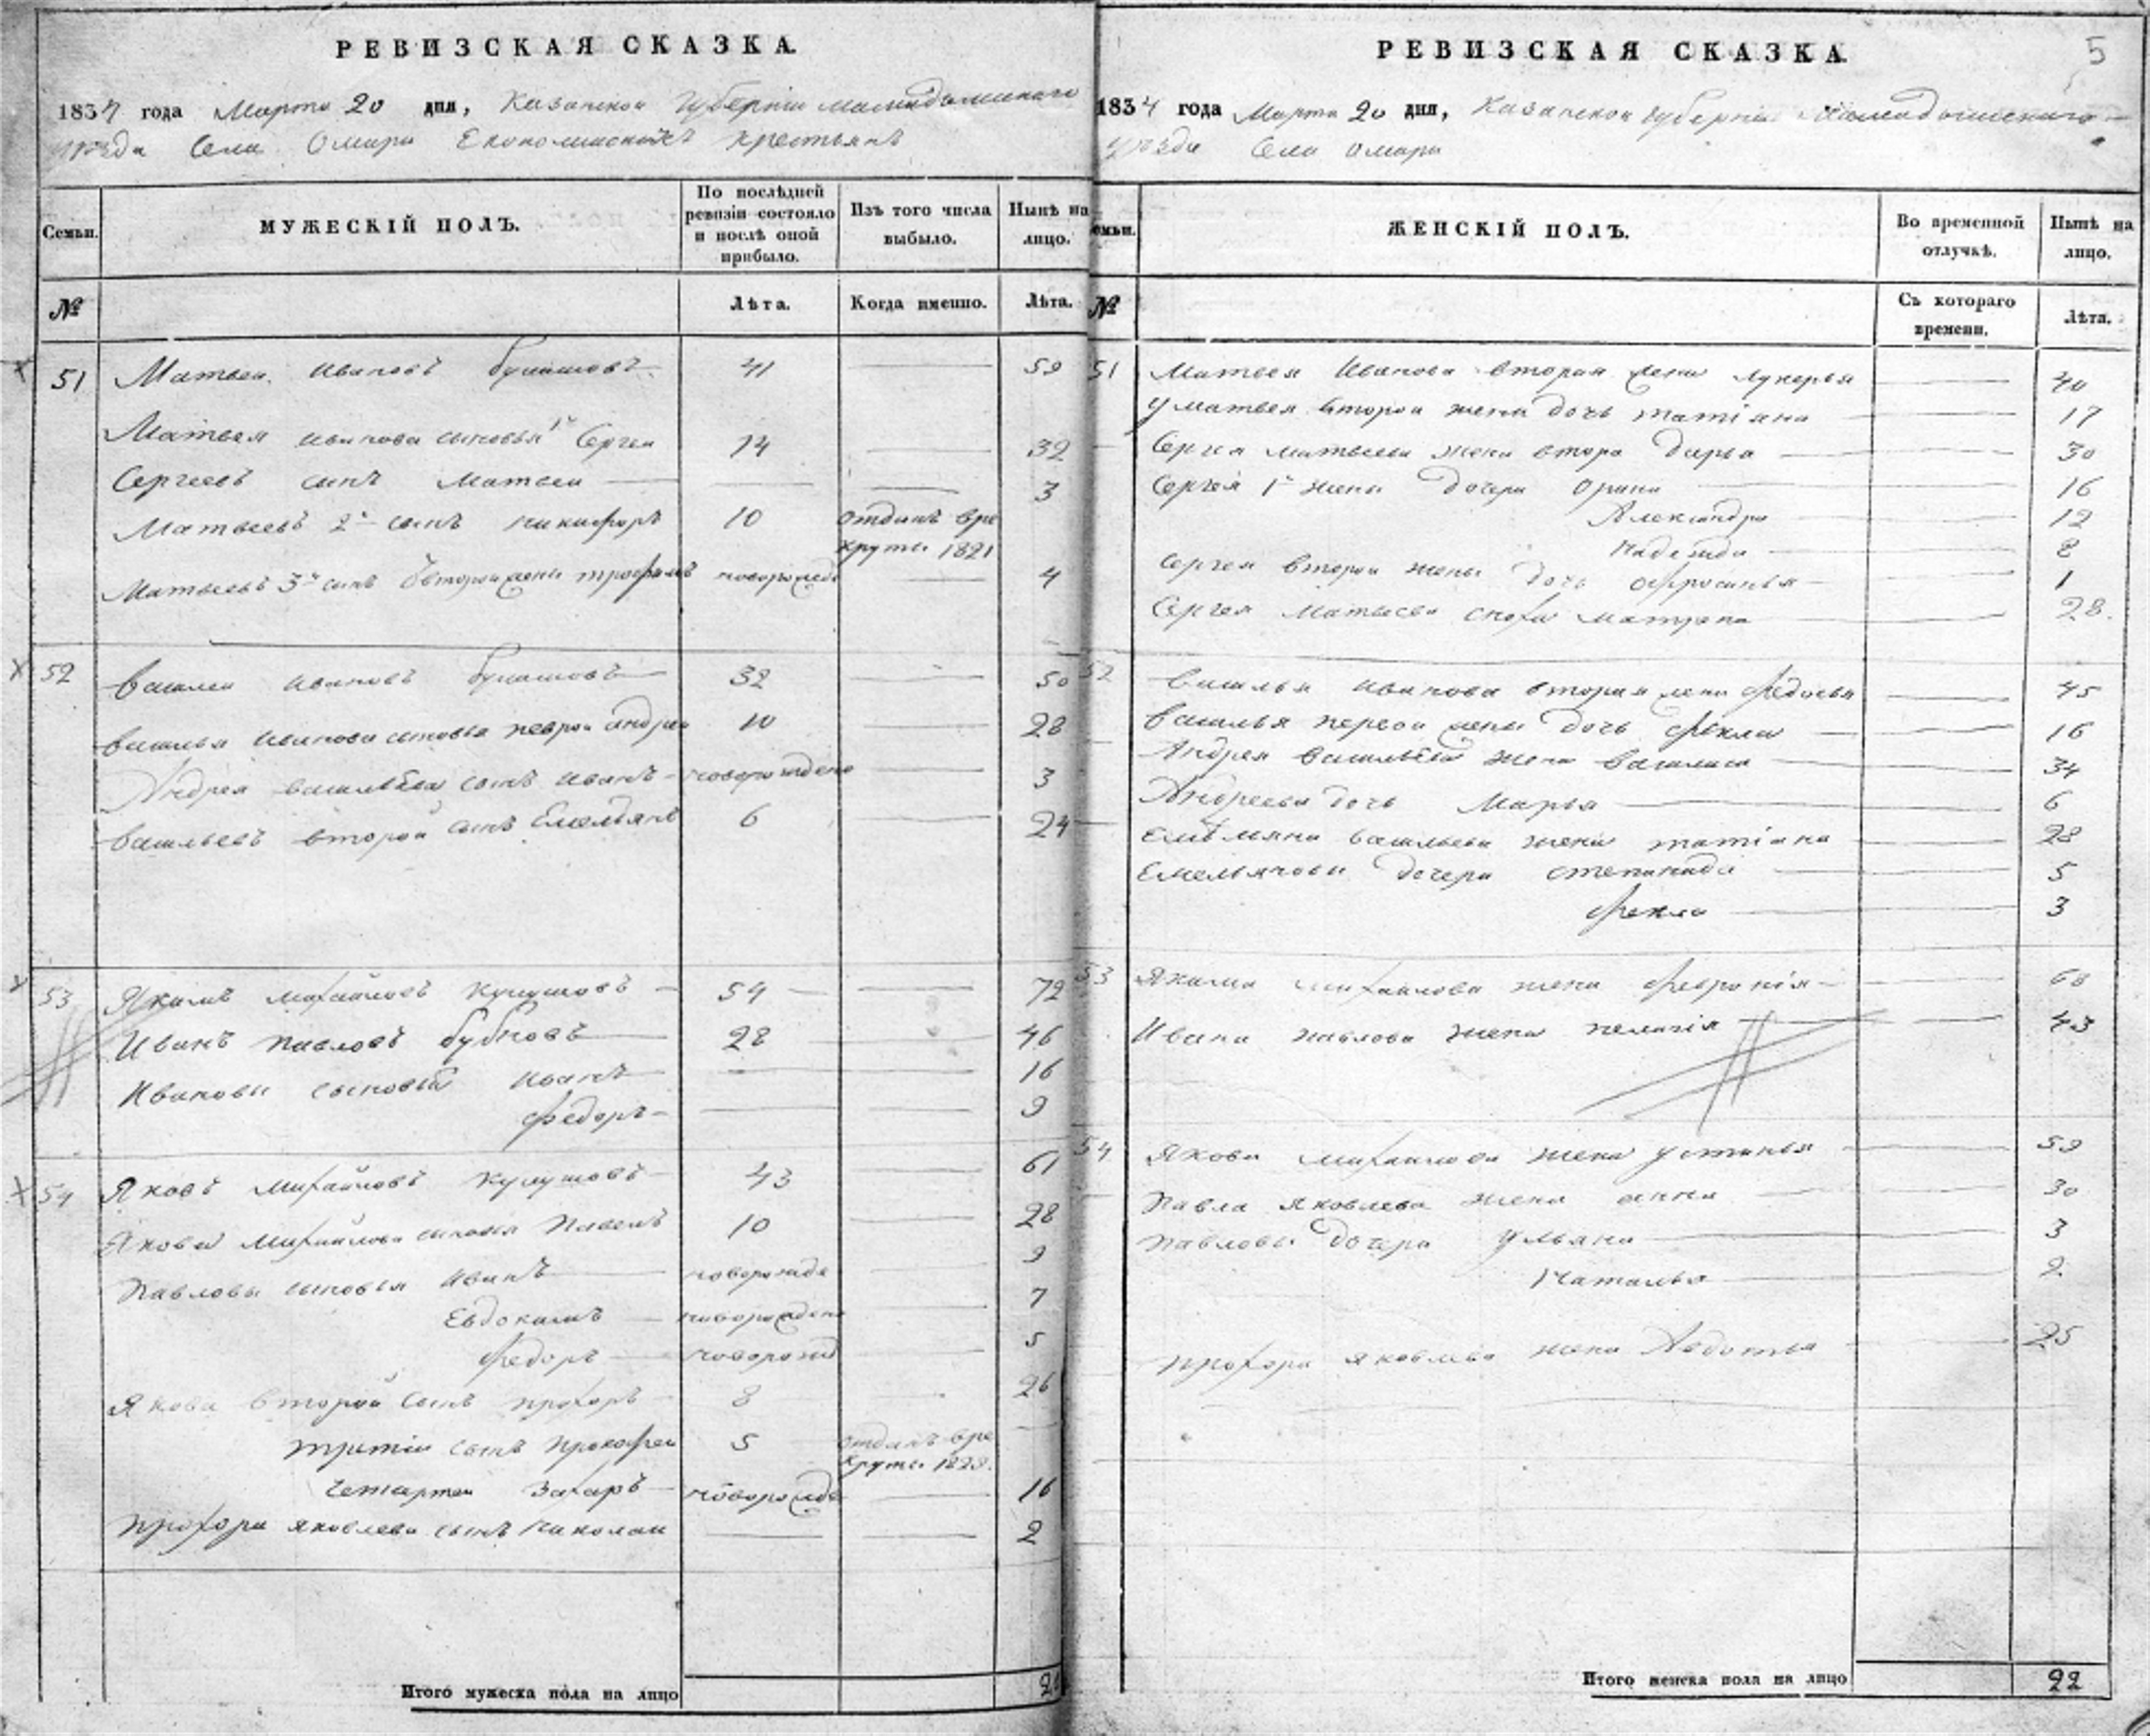 РЕВИЗСКАЯ СКАЗКА.
1834 года Марта 20 дня, Казанской Губернiи Мамадышскаго
уѣзда Села Омары Економическихъ крестьянъ
Семьи.
МУЖЕСКIЙ ПОЛЪ.
По послѣдней ревизiи состояло и послѣ оной прибыло.
Изъ того числа выбыло.
Нынѣ на лицо.
№
Лѣта.
Когда именно.
Лѣта.
51 Матвеи Ивановъ 41 59
Матвея иванова сыновья 1й Сергеи 14 32
Сергеевъ сынъ Матвеи 3
Матвеевъ 2й сынъ никифоръ 10 отданъ врекруты 1821
Матвеевъ 3й сынъ второй жены трофимъ новорожде 4
52 Василеи Ивановъ 32 50
Василья Иванова сыновья андреи 10 28
Андрея Васильева сынъ иванъ новорожденъ 3
Васильевъ второй сынъ Емельянъ 6 24
53 Якимъ михаиловъ Кукушовъ 54 72
Иванъ павловъ бубновъ 28 46
Ивановы сыновья иванъ 16
федоръ 9
54 Яковъ Михайловъ кукушовъ 43 61
Якова Михаилова сыновья Павелъ 10 28
Павловы сыновья иванъ новорожде 9
Евдокимъ новорожденъ 7
федоръ новорожд 5
Якова второй сынъ прохоръ 8 26
третiи сынъ прокофеи 5 отданъ врекруты
четвертои Захаръ новорожде 16
прохора яковлева сынъ николаи 2
Итого мужеска пола на лицо
РЕВИЗСКАЯ СКАЗКА. 5
1834 года Марта 20 дня, Казанской губернiи Мамадышскаго
уѣзда Села омары
Семьи.
ЖЕНСКIЙ ПОЛЪ.
Во временной отлучкѣ.
Нынѣ на лицо.
№
Съ котораго времени.
Лѣта.
51 Матвея Иванова вторая жена лукерья 40
У матвея второй жены дочь татiяна 17
Сергея матвеева жена втора дарья 30
Сергея 1й жены дочери орина 16
Александра 12
надежда 8
Сергея второй жены дочь офросинья 1
Сергея Матвеева сноха матрена 28.
52 Василья иванова вторая жена федосья 45
Василья первои жены дочь фекла 16
Андрея васильева жена василиса 34
Андреева дочь Марья 6
Емельяна васильева жена татiана 28
Емельяновы дочери степанида 5
фекла 3
53 Якима михаилова жена феврония 60
Ивана павлова жена пелагiя 43
54 Якова михаилова жена устинья 59
Павла яковлева жена анна 30
Павловы дочери ульяна 3
Наталья 2
прохора яковлева жена Авдотья 25
Итого женска пола на лицо 22